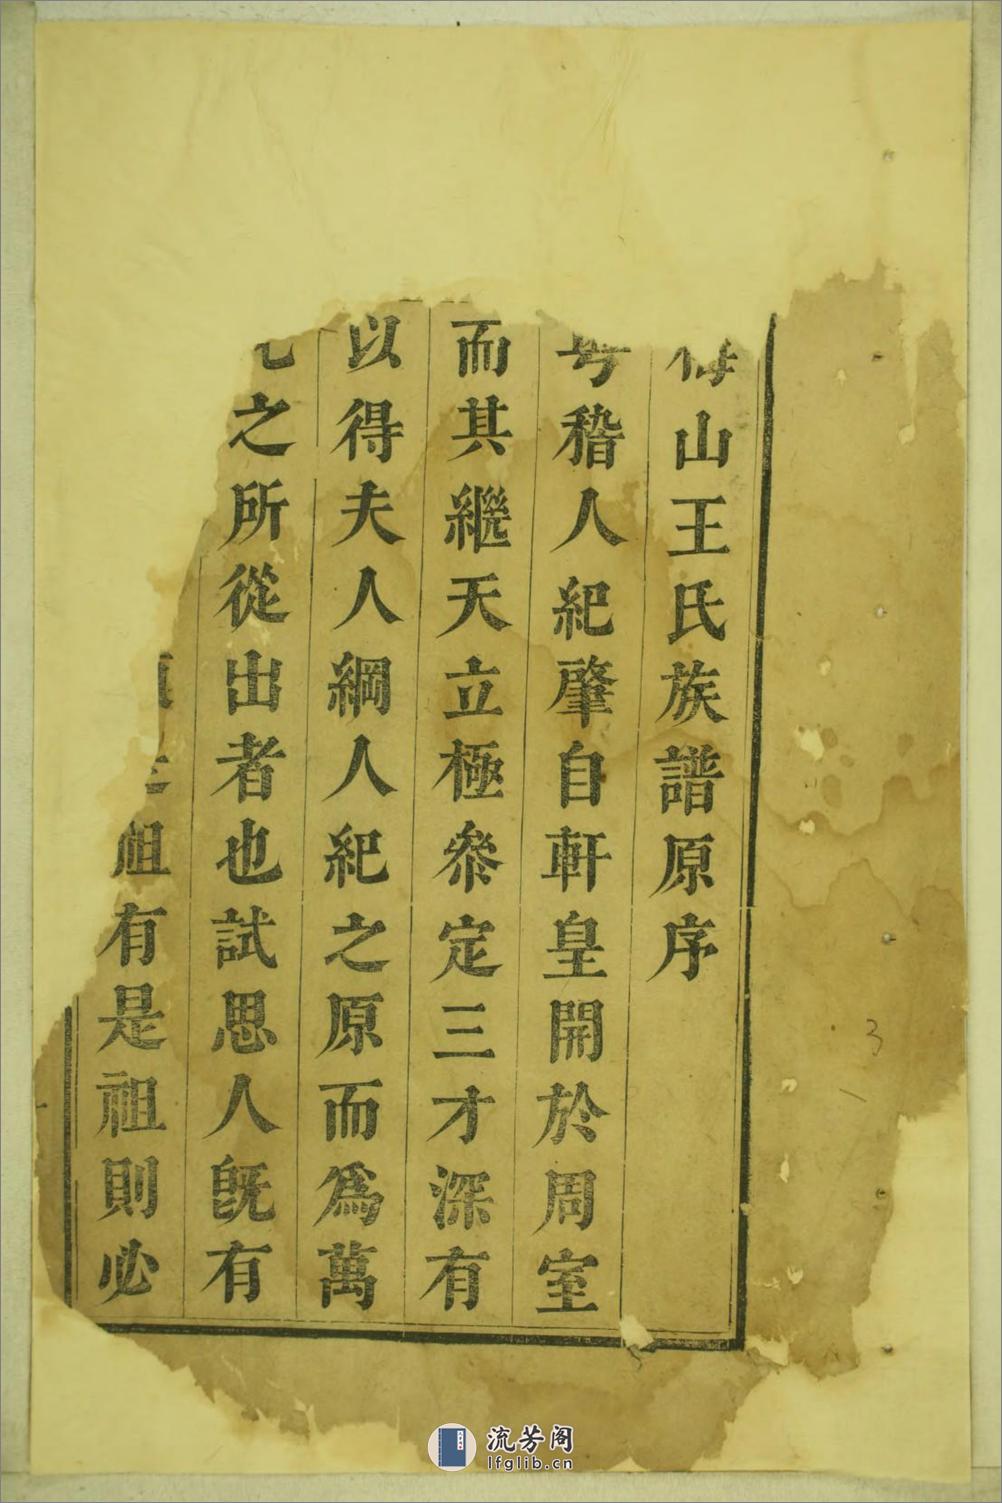 山王氏族譜原序
稽人紀肇自軒皇開於周室
而其繼天立極叅定三才深有
以得夫人綱人紀之原而為萬
之所從出者也試思人旣有
祖有是祖則必
3
流芳阁
lfglib.cn